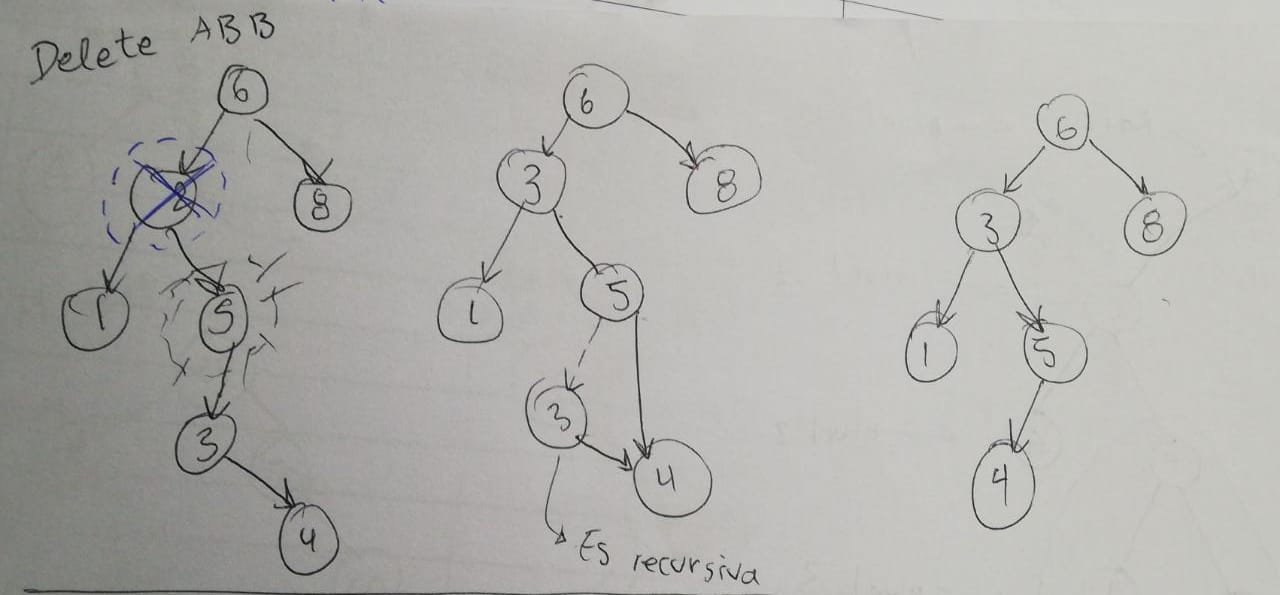 Delete ABB
6
2
8
1
5
3
4
6
3
8
1
5
3
4
Es recursiva
6
3
8
1
5
4